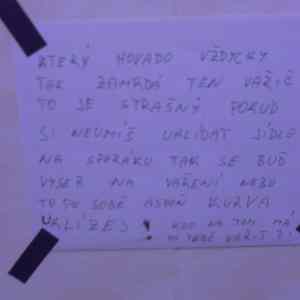 KTERÝ HOVADO VŽDYCKY
TAK ZAMRDÁ TEN VAŘIČ
TO JE STRAŠNÝ POKUD
SI NEUMÍŠ UKLÍDAT JÍDLO
NA SPORÁKU TAK SE BUĎ
VYSER NA VAŘENÍ NEBO
TO PO SOBĚ ASPOŇ KURVA
UKLÍZEJ ! KDO NA TOM MÁ
PO TOBĚ VAŘIT ?!